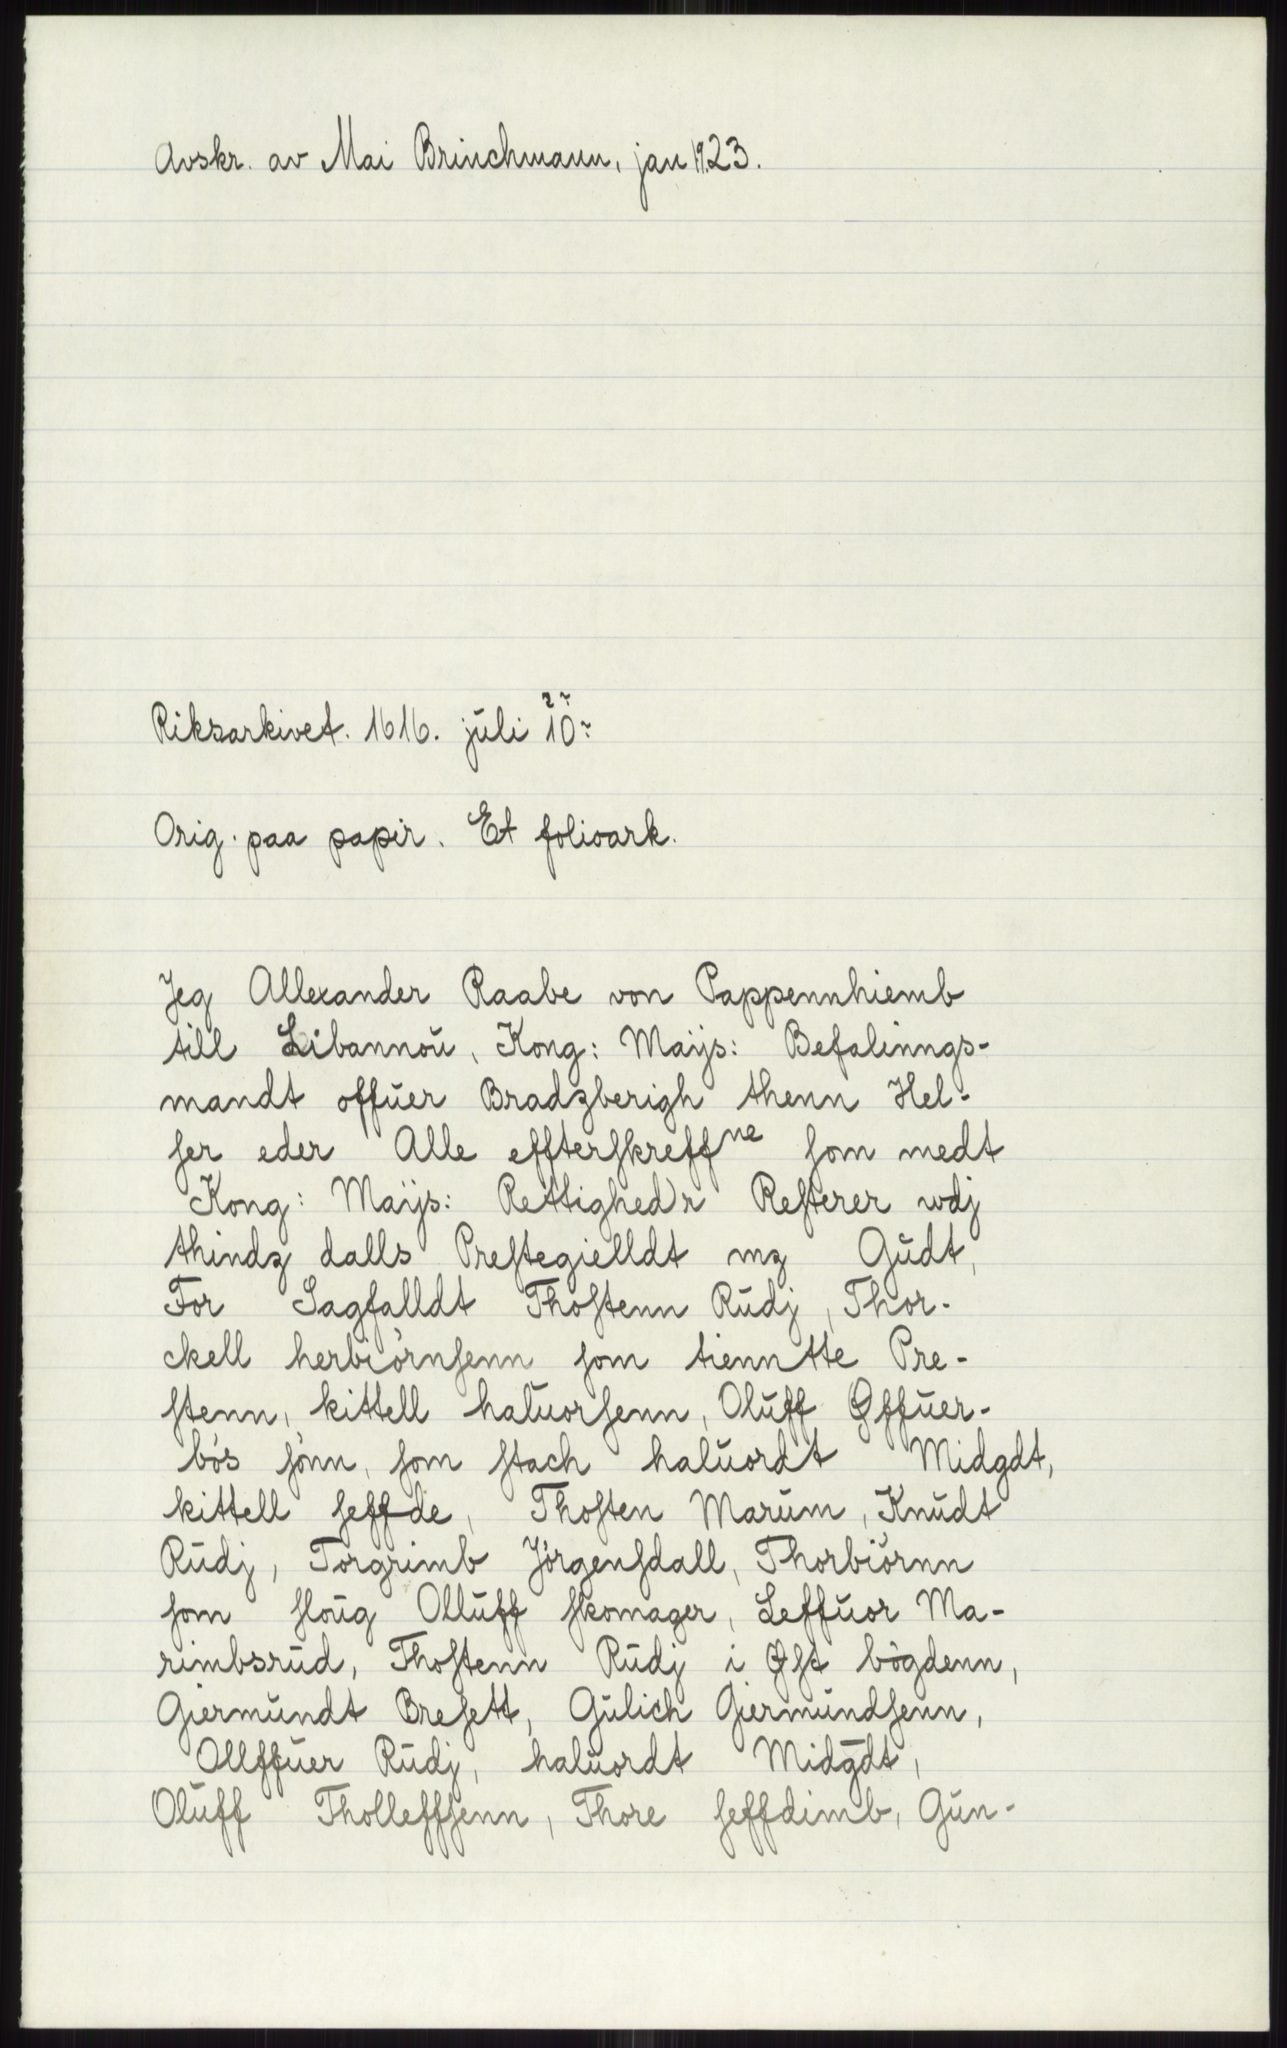 Avskr. av Mai Brinchmann, jan 1923.
Riksarkivet. 1616. juli 10
Orig. paa papir. Et folioark.
Jeg Allexander Raabe von Pappennhiemb
till Libannoŭ, Kong: Maÿs: Befalinngs-
mandt offŭer Bradzberigh thenn Hel-
ſer eder Alle effterſkreffne ſom medt
Kong: Maÿs: Rettighed'r Reſterer wdj
thindz dalls Preſtegielldt mz Gŭdt,
For Sagfalldt Thoſtenn Rŭdj, Thor-
ckell herbiörnſenn ſom tienntte Pre-
ſtenn, kittell halŭorſenn, Olŭff Øffŭer-
bós ſónn, ſom ſtach halŭordt Midgdt,
kittell ſeffde, Thoſten Marŭm, Knŭdt
Rŭdj, Torgrimb Jórgenſdall, Thorbiörnn
ſom ſloŭg Ollŭff ſkomager, Leffŭor Ma-
rimbsrŭd, Thoſtenn Rŭdj i Øſt bógdenn,
Giermŭndt Breſett, Gŭlich Giermŭndſenn,
Ollffŭer Rŭdj, halŭordt Midḡdt,
Olŭff Tholleffſenn, Thore ſeffdimb, Gŭn-